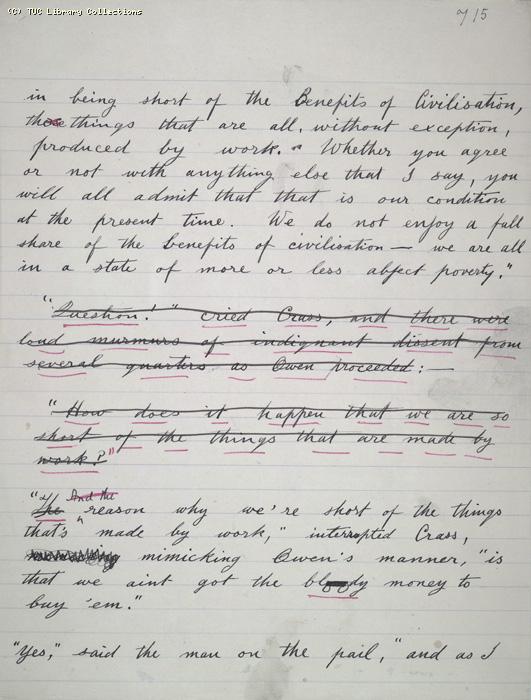 (C) TUC Library Collections
715
in being short of the Benefits of Civilisation,
those things that are all, without exception,
produced by work. Whether you agree
or not with anything else that I say, you
will all admit that that is our condition
at the present time. We do not enjoy a full
share of the benefits of civilisation — we are all
in a state of more or less abject poverty."
"Question!" cried Crass, and there were
loud murmurs of indignant dissent from
several quarters as Owen proceeded: —
"How does it happen that we are so
short of the things that are made by
work?"
"The And the reason why we're short of the things
that's made by work," interrupted Crass,
mimicking Owen's manner, "is
that we aint got the bloody money to
buy 'em."
"Yes," said the man on the pail, "and as I